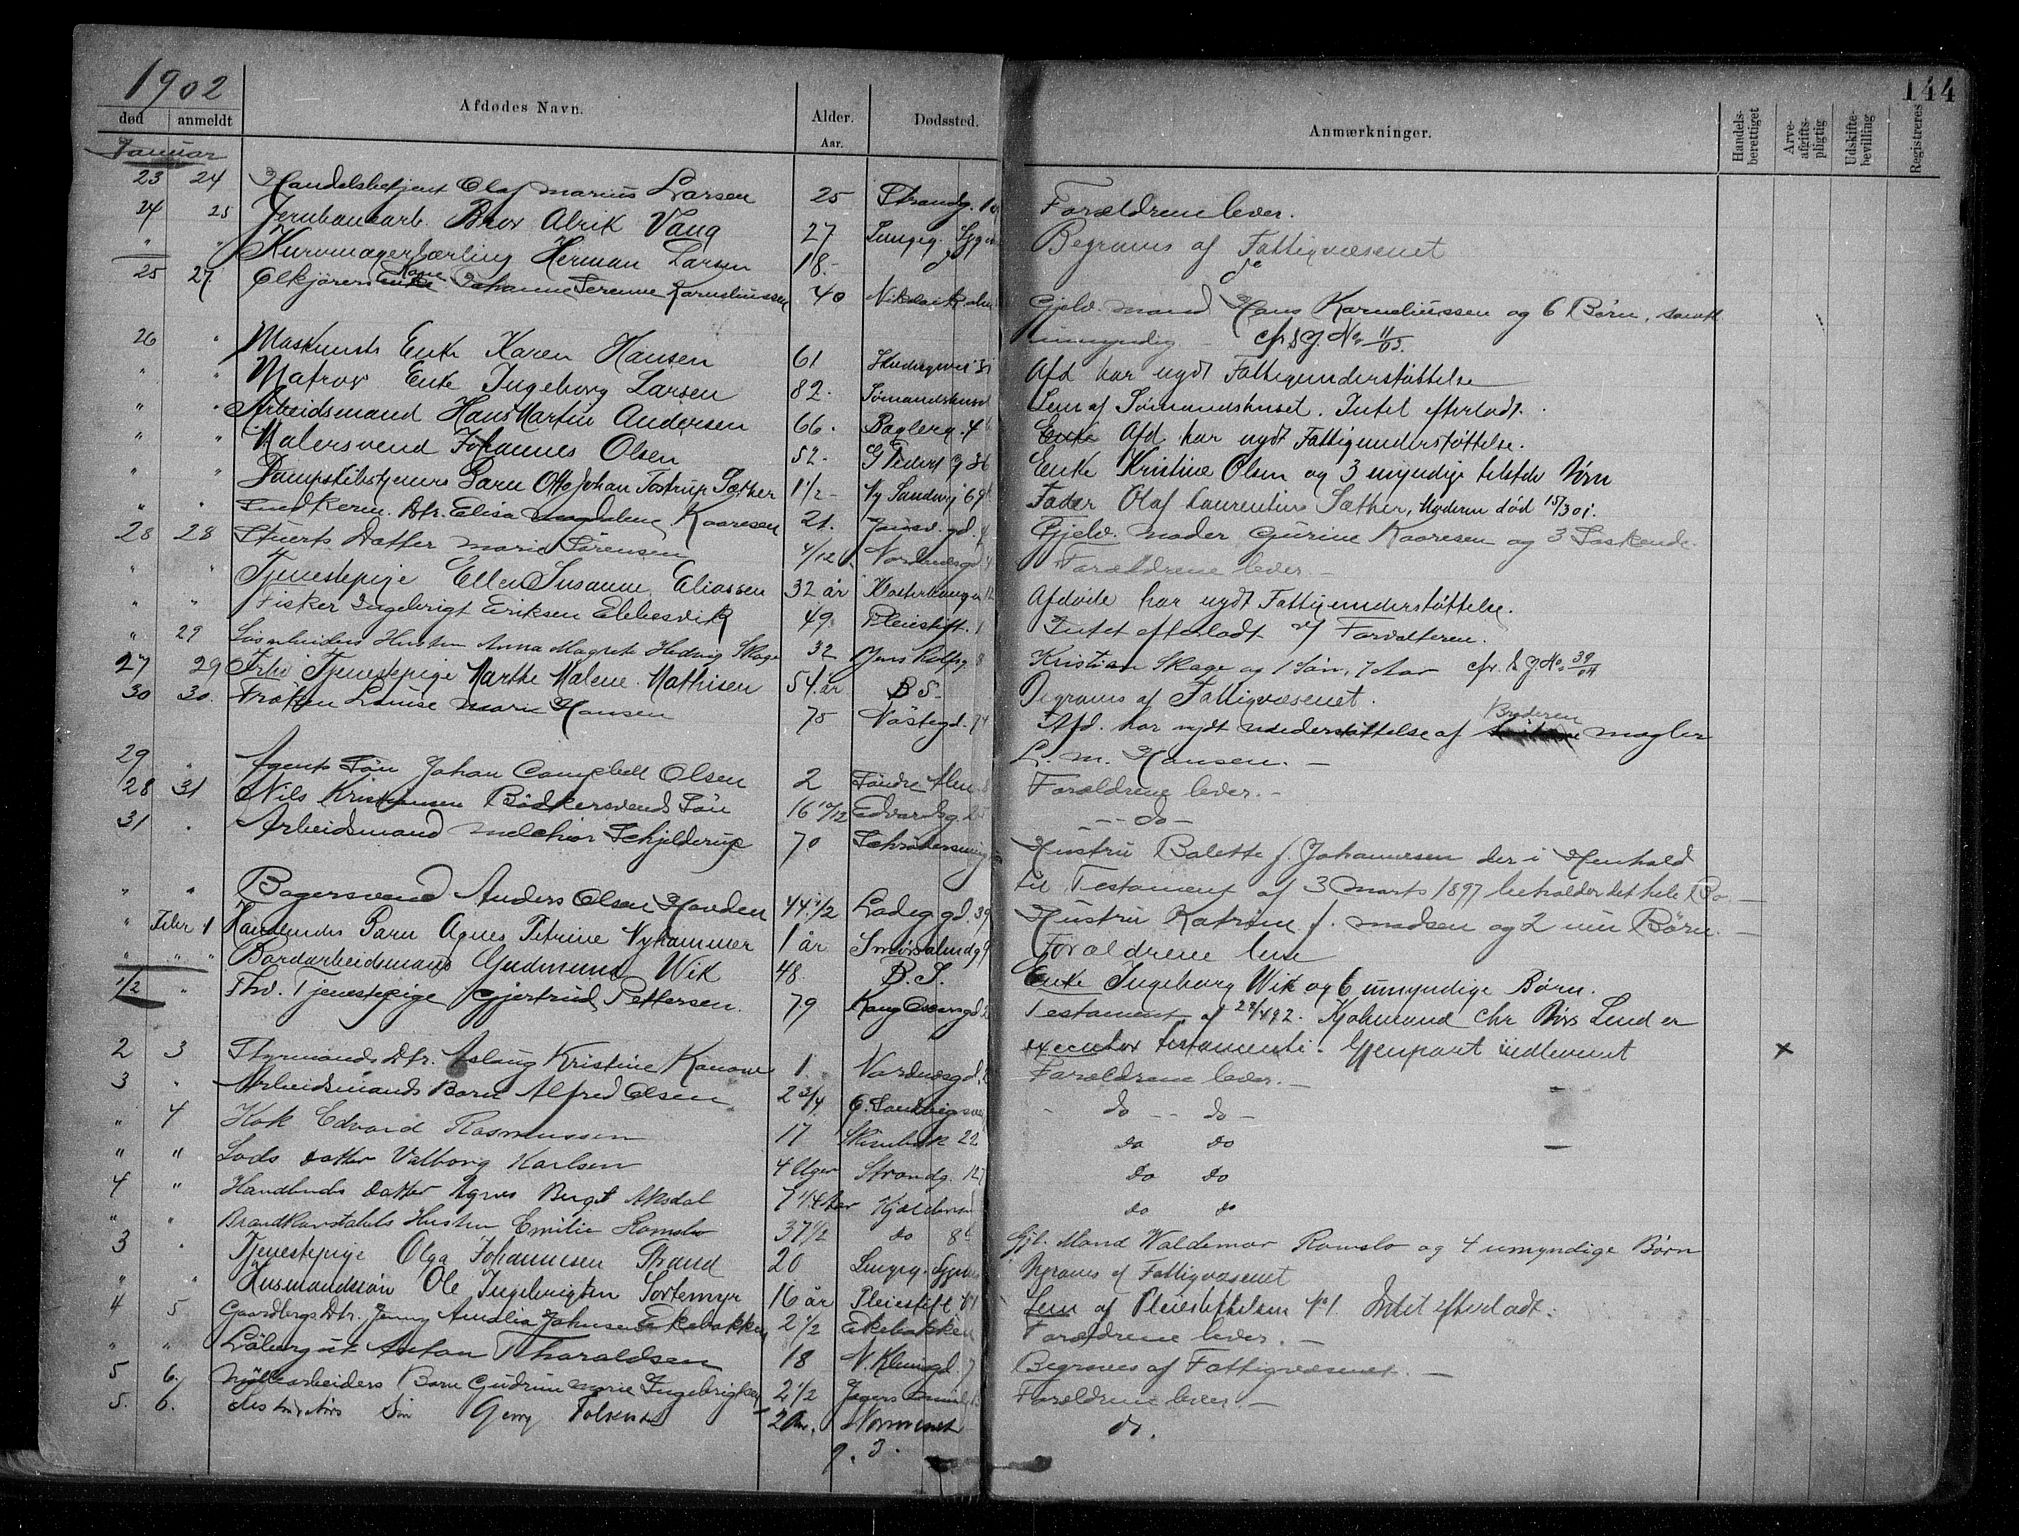 1902
144
død anmeldt Afdødes Navn. Alder. Aar. Dødssted. Anmærkninger. Handelsberettiget Arveafgiftspligtig Udskiftebevilling Registreres
Januar
23 24 Handelsbetjent Olaf Marius Larsen 25 Strandg. Forældrene lever.
24 25 Jernbanearb. Brox Alrik Vang 27 Lungeg. Begraves af Fattigvæsenet
" " Kurvmagerlærling Herman Larsen 18 - do
25 27 Ølkjørers Enke Kone Johanne Serenne Karneliussen 40 Gjelv. Mand Hans Karneliussen og 6 Børn, samtl
umyndig - cfr S.J. No 11/05.
26 " Maskinists Enke Karen Hansen 61 Afd har nydt Fattigunderstøttelse
" " Matros Enke Ingeborg Larsen 82 - Sømandshuset Lem af Sømandshuset. Intet efterladt.
" " Arbeidsmand Hans Martin Andersen 66 - Enke Afd har nydt Fattigunderstøttelse.
" " Malersvend Johannes Olsen 52 - Enke Kristine Olsen og 3 umyndige tilstede Børn
" " Dampskibstyrmrs Barn Otto Johan Tostrup Sæther 1 1/2 - Ny Sandvig 69 Fader Olaf Laurentius Sæther, Moderen død 15/3 01.
" " Elisa Magdalene Kaaresen 21. Gjelv. Moder Gurine Kaaresen og 3 Søskende.
28 28 Stuerts Datter Marie Sørensen 4/12 Nordnesgd. Forældrene lever. -
" " Tjenestepige Ellen Susanne Eliassen 32 år Afdøde har nydt Fattigunderstøttelse.
" " Fisker Ingebrigt Eriksen Ebbesvik 49 Pleiestift. 1 Intet efterladt v/ Forvalteren.
" 29 Hustru Anna Magrete Hedvig Skage 32 Jens Rolfsg. 8 Kristian Skage og 1 Søn, 7 Aar cfr. S.J. No. 39/04
27 29 Frhv Tjenestepige Marthe Malene Mathisen 54 år B S. Begraves af Fattigvæsenet.
30 30. Frøken Louise Marie Hansen 75 Nøstegd. 74 Afd. har nydt understøttelse af Broderen Mægler
L. M. Hansen. -
29 " Agents Søn Johan Campbell Olsen 2 Søndre Forældrene lever. -
28 31 Nils Kristiansen Bødkersvends Søn 16 10/12 Edvardsg. - do -
31 " Arbeidsmand Melchior Schjelderup 70 Hustru Balette f. Johannesen der i Henhold
til Testament af 3 Marts 1897 beholder det hele Bo. -
" " Bagersvend Anders Olsen Havden 44 1/2 Ladeg gd. 39 Hustru Katrine f. Madsen og 2 um Børn. -
" Febr 1 Handlendes Barn Agnes Petrine Nyhammer 1 år Smörsalmdg 9 Forældrene leve
" " Bordarbeidsmand Gudmund Wik 48 B. S. Enke Ingeborg Wik og 6 umyndige Børn.
1/2 " Fhv. Tjenestepige Gjertrud Pettersen. 79 Kong Oscarsgd Testament af 22/4 92. Kjøbmand Chr Børs Lund er
executor testamenti. Gjenpart indleveret x
2 3 Styrmands Dtr. Aslaug Kristine Kanow 1. Nordnæsgd. Forældrene lever. -
3 " Arbeidsmands Barn Alfred Olsen 2 3/4 - do - - do -
" 4 Kok Edvard Rasmussen 17 22 do do
" " Lods datter Valborg Karlsen 4 Uger Strandg. 127 do do
4 " Handlende datter Agnes Aksdal 7 1/4 Aar do do
" " Brandkonstabels Hustru Emilie Romslo 37 1/2 do 8 Gjl. Mand Waldemar Romslo og 4 umyndige Børn
3 " Tjenestepige Olga Johannesen Strand 20 Lungeg. Begraves af Fattigvæsenet
" " Husmandssøn Ole Ingebrigten Sortemyr 16 år Pleiestift No 1 Lem af Pleiestiftelsen No 1. Intet efterladt.
4 5 Gaardbrgs Dtr. Jenny Amelia Johnsen Ekebakken 2 1/2 Ekebakken Forældrene lever. -
" " Løbergut Anton Tharaldsen 18 7 Begraves af Fattigvæsenet. -
5 6. Møllearbeiders Barn Gudrun Marie Ingebrigtsen 2 1/2 Forældrene lever. -
5. 6. Søn Georg 2 Aar. do.
9. 3.